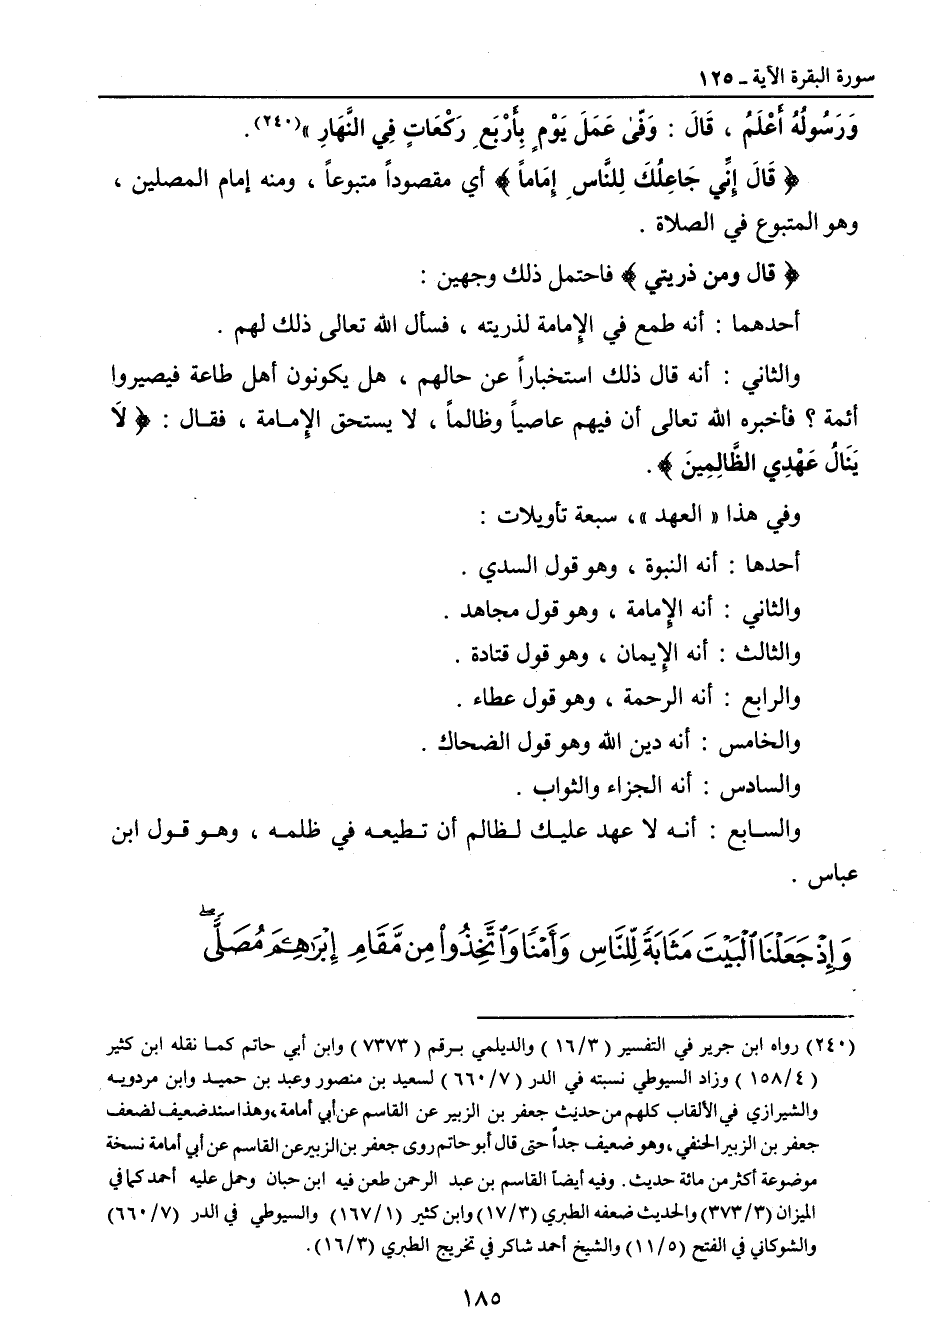 سورة البقرة الآية ـ ١٢٥
وَرَسُولُهُ أَعْلَمُ ، قَالَ : وَفَّىٰ عَمَلَ يَوْمٍ بِأَرْبَعِ رَكْعَاتٍ فِي النَّهَارِ »(٢٤٠).
﴿ قَالَ إِنِّي جَاعِلُكَ لِلنَّاسِ إِمَاماً ﴾ أي مقصوداً متبوعاً ، ومنه إمام المصلين ،
وهو المتبوع في الصلاة .
﴿ قال ومن ذريتي ﴾ فاحتمل ذلك وجهين :
أحدهما : أنه طمع في الإمامة لذريته ، فسأل الله تعالى ذلك لهم .
والثاني : أنه قال ذلك استخباراً عن حالهم ، هل يكونون أهل طاعة فيصيروا
أئمة ؟ فأخبره الله تعالى أن فيهم عاصياً وظالماً ، لا يستحق الإمامة ، فقال : ﴿ لَا
يَنَالُ عَهْدِي الظَّالِمِينَ ﴾ .
وفي هذا « العهد »، سبعة تأويلات :
أحدها : أنه النبوة ، وهو قول السدي .
والثاني : أنه الإمامة ، وهو قول مجاهد .
والثالث : أنه الإيمان ، وهو قول قتادة .
والرابع : أنه الرحمة ، وهو قول عطاء .
والخامس : أنه دين الله وهو قول الضحاك .
والسادس : أنه الجزاء والثواب .
والسابع : أنه لا عهد عليك لظالم أن تطيعه في ظلمه ، وهو قول ابن
عباس .
وَإِذْ جَعَلْنَا ٱلْبَيْتَ مَثَابَةً لِّلنَّاسِ وَأَمْنًا وَٱتَّخِذُواْ مِن مَّقَامِ إِبْرَٰهِـۧمَ مُصَلًّىۖ
(٢٤٠) رواه ابن جرير في التفسير (١٦/٣ ) والديلمي برقم (٧٣٧٣) وابن أبي حاتم كما نقله ابن كثير
(١٥٨/٤ ) وزاد السيوطي نسبته في الدر (٦٦٠/٧) لسعيد بن منصور وعبد بن حميد وابن مردويه
والشيرازي في الألقاب كلهم من حديث جعفر بن الزبير عن القاسم عن أبي أمامة ، وهذا سند ضعيف لضعف
جعفر بن الزبير الحنفي ، وهو ضعيف جداً حتى قال أبو حاتم روى جعفر بن الزبير عن القاسم عن أبي أمامة نسخة
موضوعة أكثر من مائة حديث . وفيه أيضاً القاسم بن عبد الرحمن طعن فيه ابن حبان وحمل عليه أحمد كما في
الميزان (٣٧٣/٣) والحديث ضعفه الطبري (١٧/٣) وابن كثير (١٦٧/١) والسيوطي في الدر (٦٦٠/٧)
والشوكاني في الفتح (١١/٥) والشيخ أحمد شاكر في تخريج الطبري (١٦/٣).
١٨٥